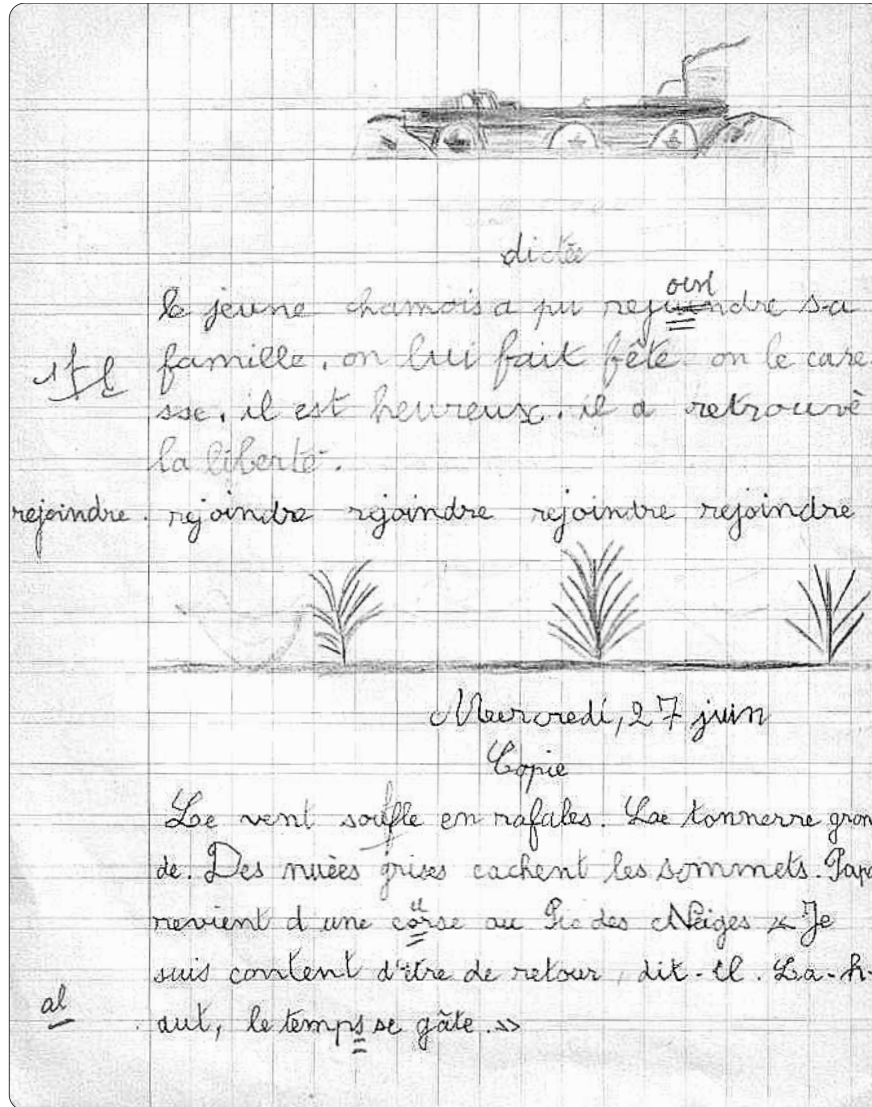 dictée
le jeune chamois a pu rejoindre sa
famille. on lui fait fête on le care
sse. il est heureux. il a retrouvé
la liberté.
rejoindre. rejoindre rejoindre rejoindre rejoindre
Mercredi, 27 juin
Copie
Le vent souffle en rafales. Le tonnerre gron
de. Des nuées grises cachent les sommets. Papa
revient d'une course au Pic des Neiges « Je
suis content d'être de retour, dit-il. La-h-
aut, le temps se gâte. »